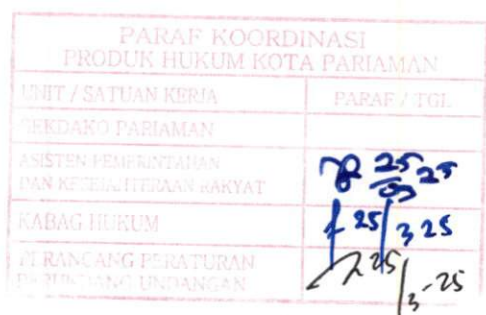 PARAF KOORDINASI
PRODUK HUKUM KOTA PARIAMAN
UNIT / SATUAN KERJA PARAF / TGL
SEKDAKO PARIAMAN
ASISTEN PEMERINTAHAN
DAN KESEJAHTERAAN RAKYAT 25/03 25
KABAG HUKUM 25/3 25
PERANCANG PERATURAN
PERUNDANG UNDANGAN 25/3-25